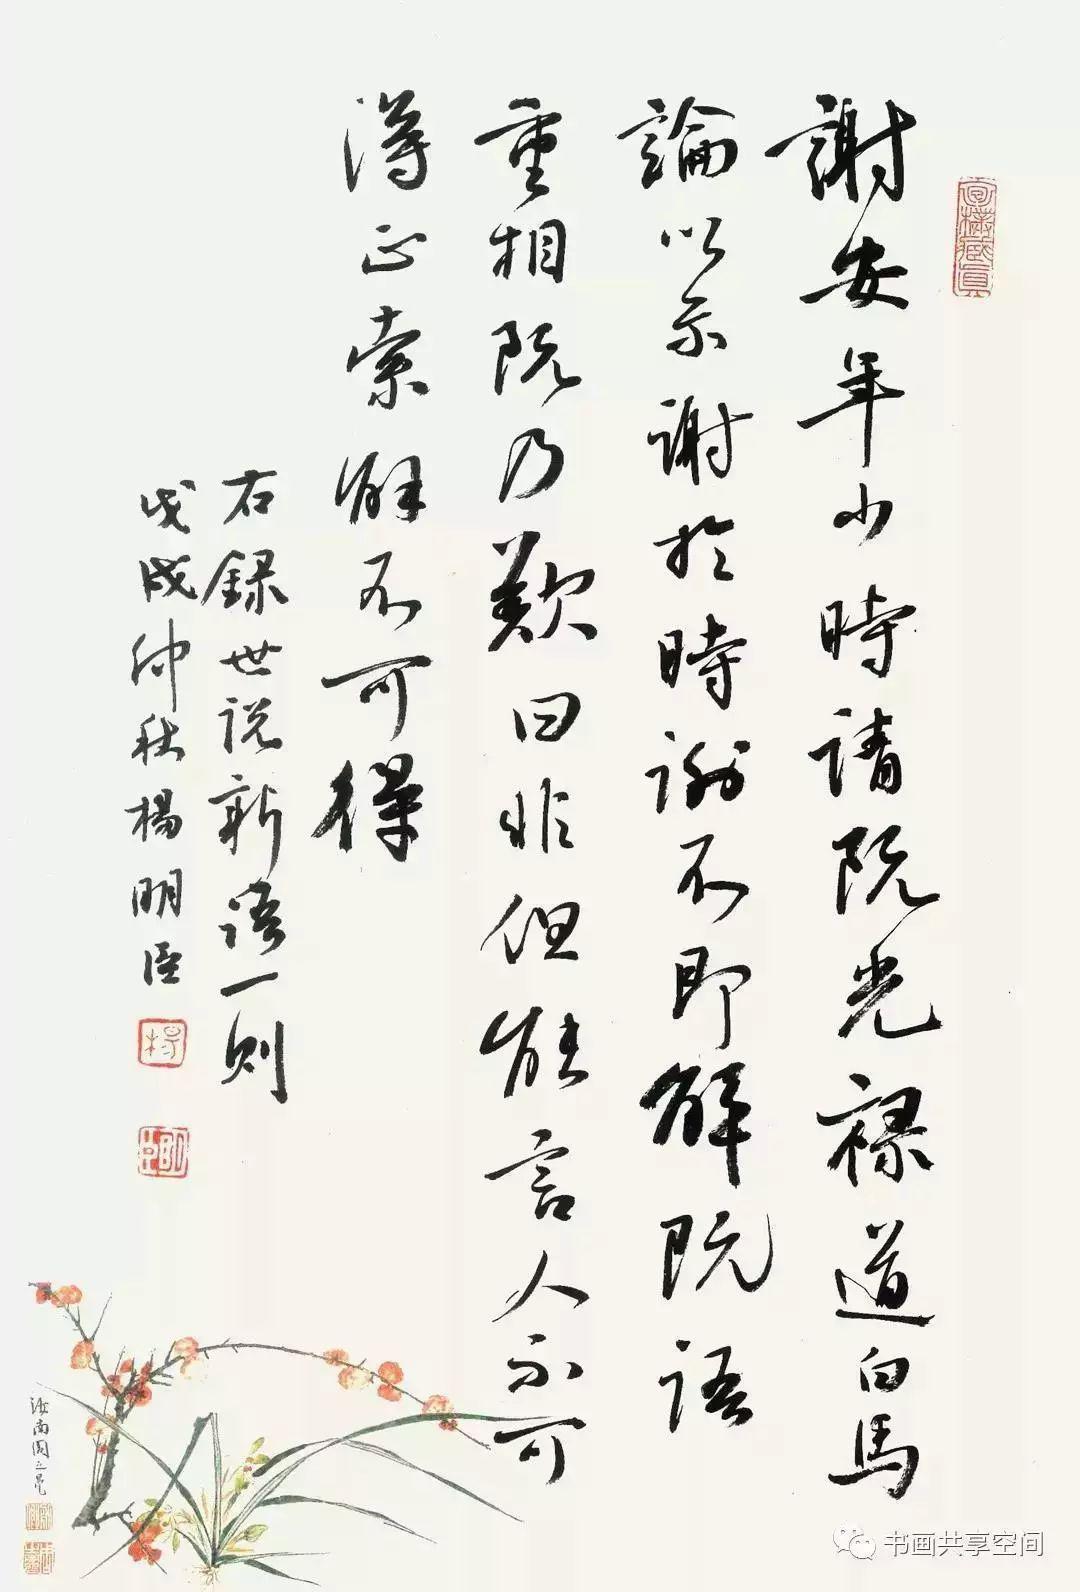 謝安年少時請阮光禄道白馬
論以示謝於時謝不即解阮語
重相阮乃歎曰非但能言人不可
得正索解不可得
右録世说新语一则
戊戌仲秋楊明臣
楊
明臣
汝南周之冕
书画共享空间